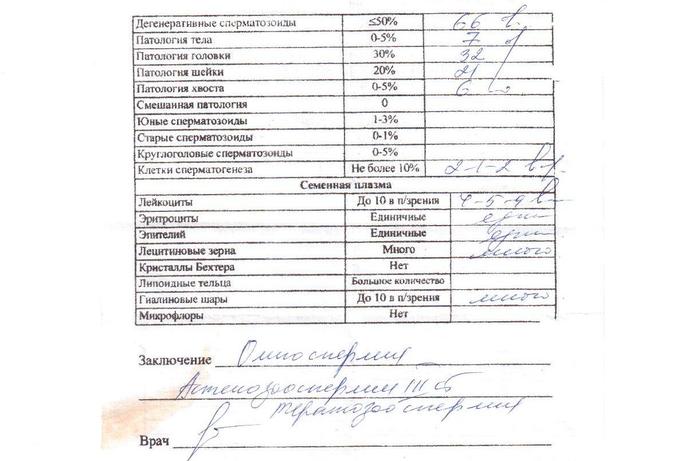 Дегенеративные сперматозоиды ≤50% 66
Патология тела 0-5% 7
Патология головки 30% 32
Патология шейки 20% 21
Патология хвоста 0-5% 6
Смешанная патология 0
Юные сперматозоиды 1-3%
Старые сперматозоиды 0-1%
Круглоголовые сперматозоиды 0-5%
Клетки сперматогенеза Не более 10% 2-1-2
Семенная плазма
Лейкоциты До 10 в п/зрения 4-5-9
Эритроциты Единичные един
Эпителий Единичные един
Лецитиновые зерна Много много
Кристаллы Бехтера Нет
Липоидные тельца Большое количество
Гиалиновые шары До 10 в п/зрения много
Микрофлоры Нет
Заключение Олигоспермия
Астенозооспермия III ст
тератозооспермия
Врач